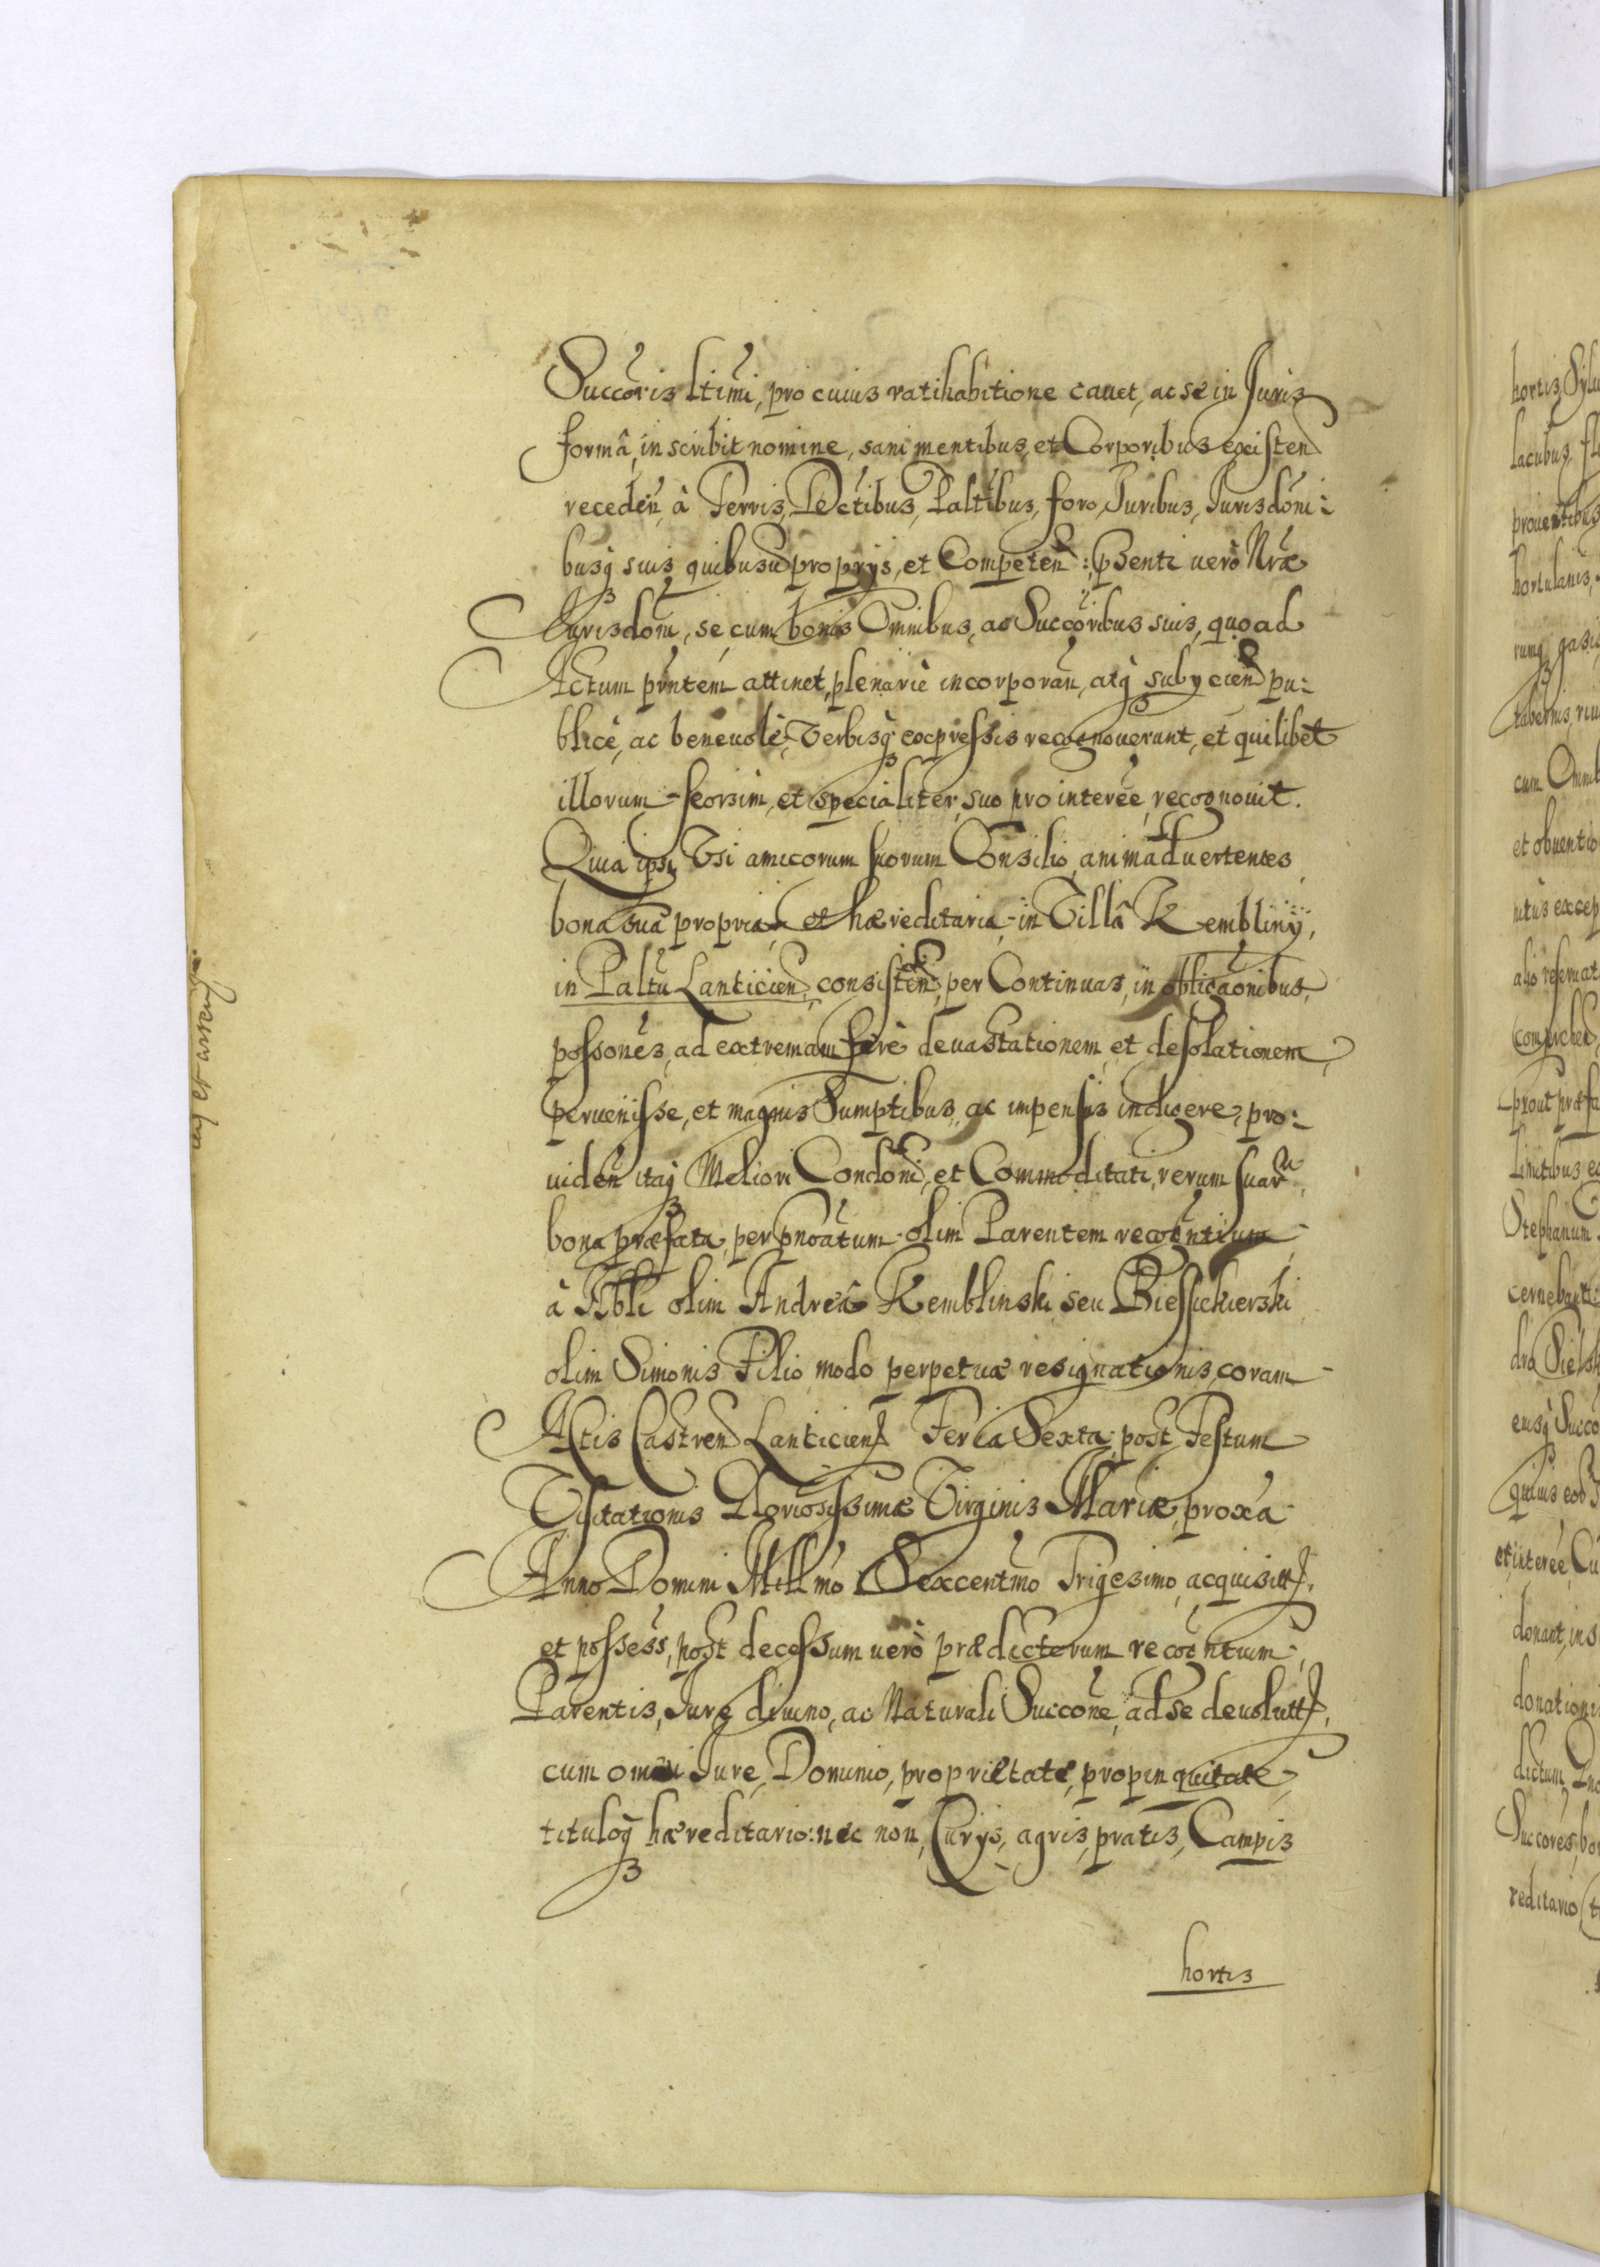 Succoris ltimi, pro cuius ratihabitione cauet, ac se in Juris
formâ, inscribit nomine, sani mentibus, et Corporibus existen
receden, à Terris, Dctibus, Paltibus, foro, Juribus, Jurisdoni:
busq suis quibusu proprys, et Competen: pnsenti uerò Nræ
Jurisdoni, se, cum bonis Omnibus, ac Succoribus suis, quoad
Actum pnntem attinet, plenariè incorporan, atq subycien pu:
blicè, ac beneuolè, Verbisq expressis recognouerunt, et quilibet
illorum seorsim, et specialiter, suo pro interee, recognouit.
Quia ipsi Vsi amicorum suorum Consilio, animaduertentes
bona sua propria, et hæreditaria, in Villâ Kembliny,
in Paltu Lanciciens, consisten, per Continuas, in obligaonibus,
possones, ad extremam ferè deuastationem, et desolationem
peruenisse, et magnis Sumptibus, ac impensis indigere, pro:
uiden itaq Meliori Condoni, et Commoditati, rerum suar
bona præfata, per pnoatum olim Parentem recogntium
à Nbli olim Andreâ Kemblinski seu Biessickierski
olim Simonis Filio, modo perpetuæ resignationis, coram
Actis Castren Lanciciens Feria Sexta, post Festum
Visitationis Gloriosissimæ Virginis Mariæ, proxa
Anno Domini Millmo Sexcentmo Trigesimo, acquisitt,
et possess, post decessum uerò prædictorum recogntium
Parentis, Jure diuino, ac Naturali Succone, ad se deuolutt,
cum omni Jure, Dominio, proprietate, propinquitate,
tituloq hæreditario: nec non, Curys, agris, pratis, Campis
hortis